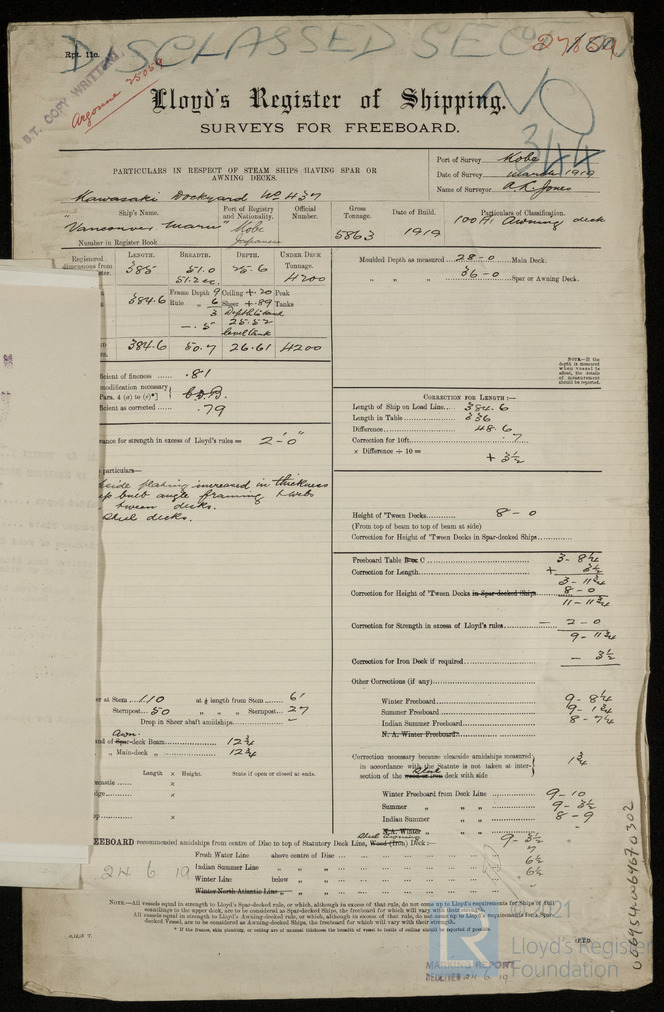 Rpt. 11c.
DISCLASSED SEC
27859
B.T. COPY WRITTEN
Argonne 25059
NO
Lloyd's Register of Shipping.
SURVEYS FOR FREEBOARD.
344
PARTICULARS IN RESPECT OF STEAM SHIPS HAVING SPAR OR
AWNING DECKS.
Port of Survey Kobe
Date of Survey March 1919
Name of Surveyor A. L. Jones
Kawasaki Dockyard No 437
Ship's Name.
Port of Registry and Nationality.
Official Number.
Gross Tonnage.
Date of Build.
Particulars of Classification.
"Vancouver Maru"
Kobe
Japanese
5863
1919
100A1 Awning deck
Number in Register Book
Registered dimensions from
LENGTH. BREADTH. DEPTH. UNDER DECK Tonnage.
385 51.0 25.6 4200
51.2 ec.
384.6 Frame Depth 9 Ceiling +.20 Peak
Rule " 6 Sheer +.89 Tanks
3
-.5 25.52
level tank
384.6 50.7 26.61 4200
Moulded Depth as measured 28-0 Main Deck.
" " " 36-0 Spar or Awning Deck.
NOTE—If the depth is measured when vessel is afloat, the details of measurement should be reported.
icient of fineness .81
modification necessary
Para. 4 (a) to (e)*] C.D.B.
icient as corrected .79
CORRECTION FOR LENGTH :—
Length of Ship on Load Line 384.6
Length in Table 336
Difference 48.6
Correction for 10ft. .7
× Difference ÷ 10 = + 3½
ance for strength in excess of Lloyd's rules = 2'-0"
particulars—
side plating increased in thickness
up bulb angle framing & webs
tween decks.
Steel decks.
Height of 'Tween Decks 8-0
(From top of beam to top of beam at side)
Correction for Height of 'Tween Decks in Spar-decked Ships
Freeboard Table C 3-8¼
Correction for Length + 3½
3-11¾
Correction for Height of 'Tween Decks in Spar-decked Ships 8-0
11-11¾
Correction for Strength in excess of Lloyd's rules — 2-0
9-11¾
Correction for Iron Deck if required — 3½
Other Corrections (if any)
Winter Freeboard 9-8¼
Summer Freeboard 9-1¾
Indian Summer Freeboard 8-7¼
N. A. Winter Freeboard
er at Stem 110 at ⅛ length from Stem 61
Sternpost 50 " " " Sternpost 27
Drop in Sheer abaft amidships —
Awn.
and of Spar-deck Beam 12¾
" " Main-deck " 12¾
Length × Height. State if open or closed at ends.
castle ×
dge ×
p ×
Correction necessary because clearside amidships measured
in accordance with the Statute is not taken at inter-
section of the wood or iron deck with side 1¾
Steel
Winter Freeboard from Deck Line 9-10
Summer " " " 9-3½
Indian Summer " " " 8-9
N.A. Winter " " "
Steel Awning
EEBOARD recommended amidships from centre of Disc to top of Statutory Deck Line, Wood (Iron) Deck :— 9-3½
Fresh Water Line above centre of Disc 7
Indian Summer Line " " 6½
Winter Line below " 6½
Winter North Atlantic Line " "
24.6.19
NOTE.—All vessels equal in strength to Lloyd's Spar-decked rule, or which, although in excess of that rule, do not come up to Lloyd's requirements for Ships of full
scantlings to the upper deck, are to be considered as Spar-decked Ships, the freeboard for which will vary with their strength.
All vessels equal in strength to Lloyd's Awning-decked rule, or which, although in excess of that rule, do not come up to Lloyd's requirements for a Spar
decked Vessel, are to be considered as Awning-decked Ships, the freeboard for which will vary with their strength.
* If the frames, skin planking, or ceiling are of unusual thickness the breadth of vessel to inside of ceiling should be reported if possible.
P.T.O.
MARKING REPORT
RECEIVED 24.6.19
2021
Lloyd's Register
Foundation
006954-006967-0302